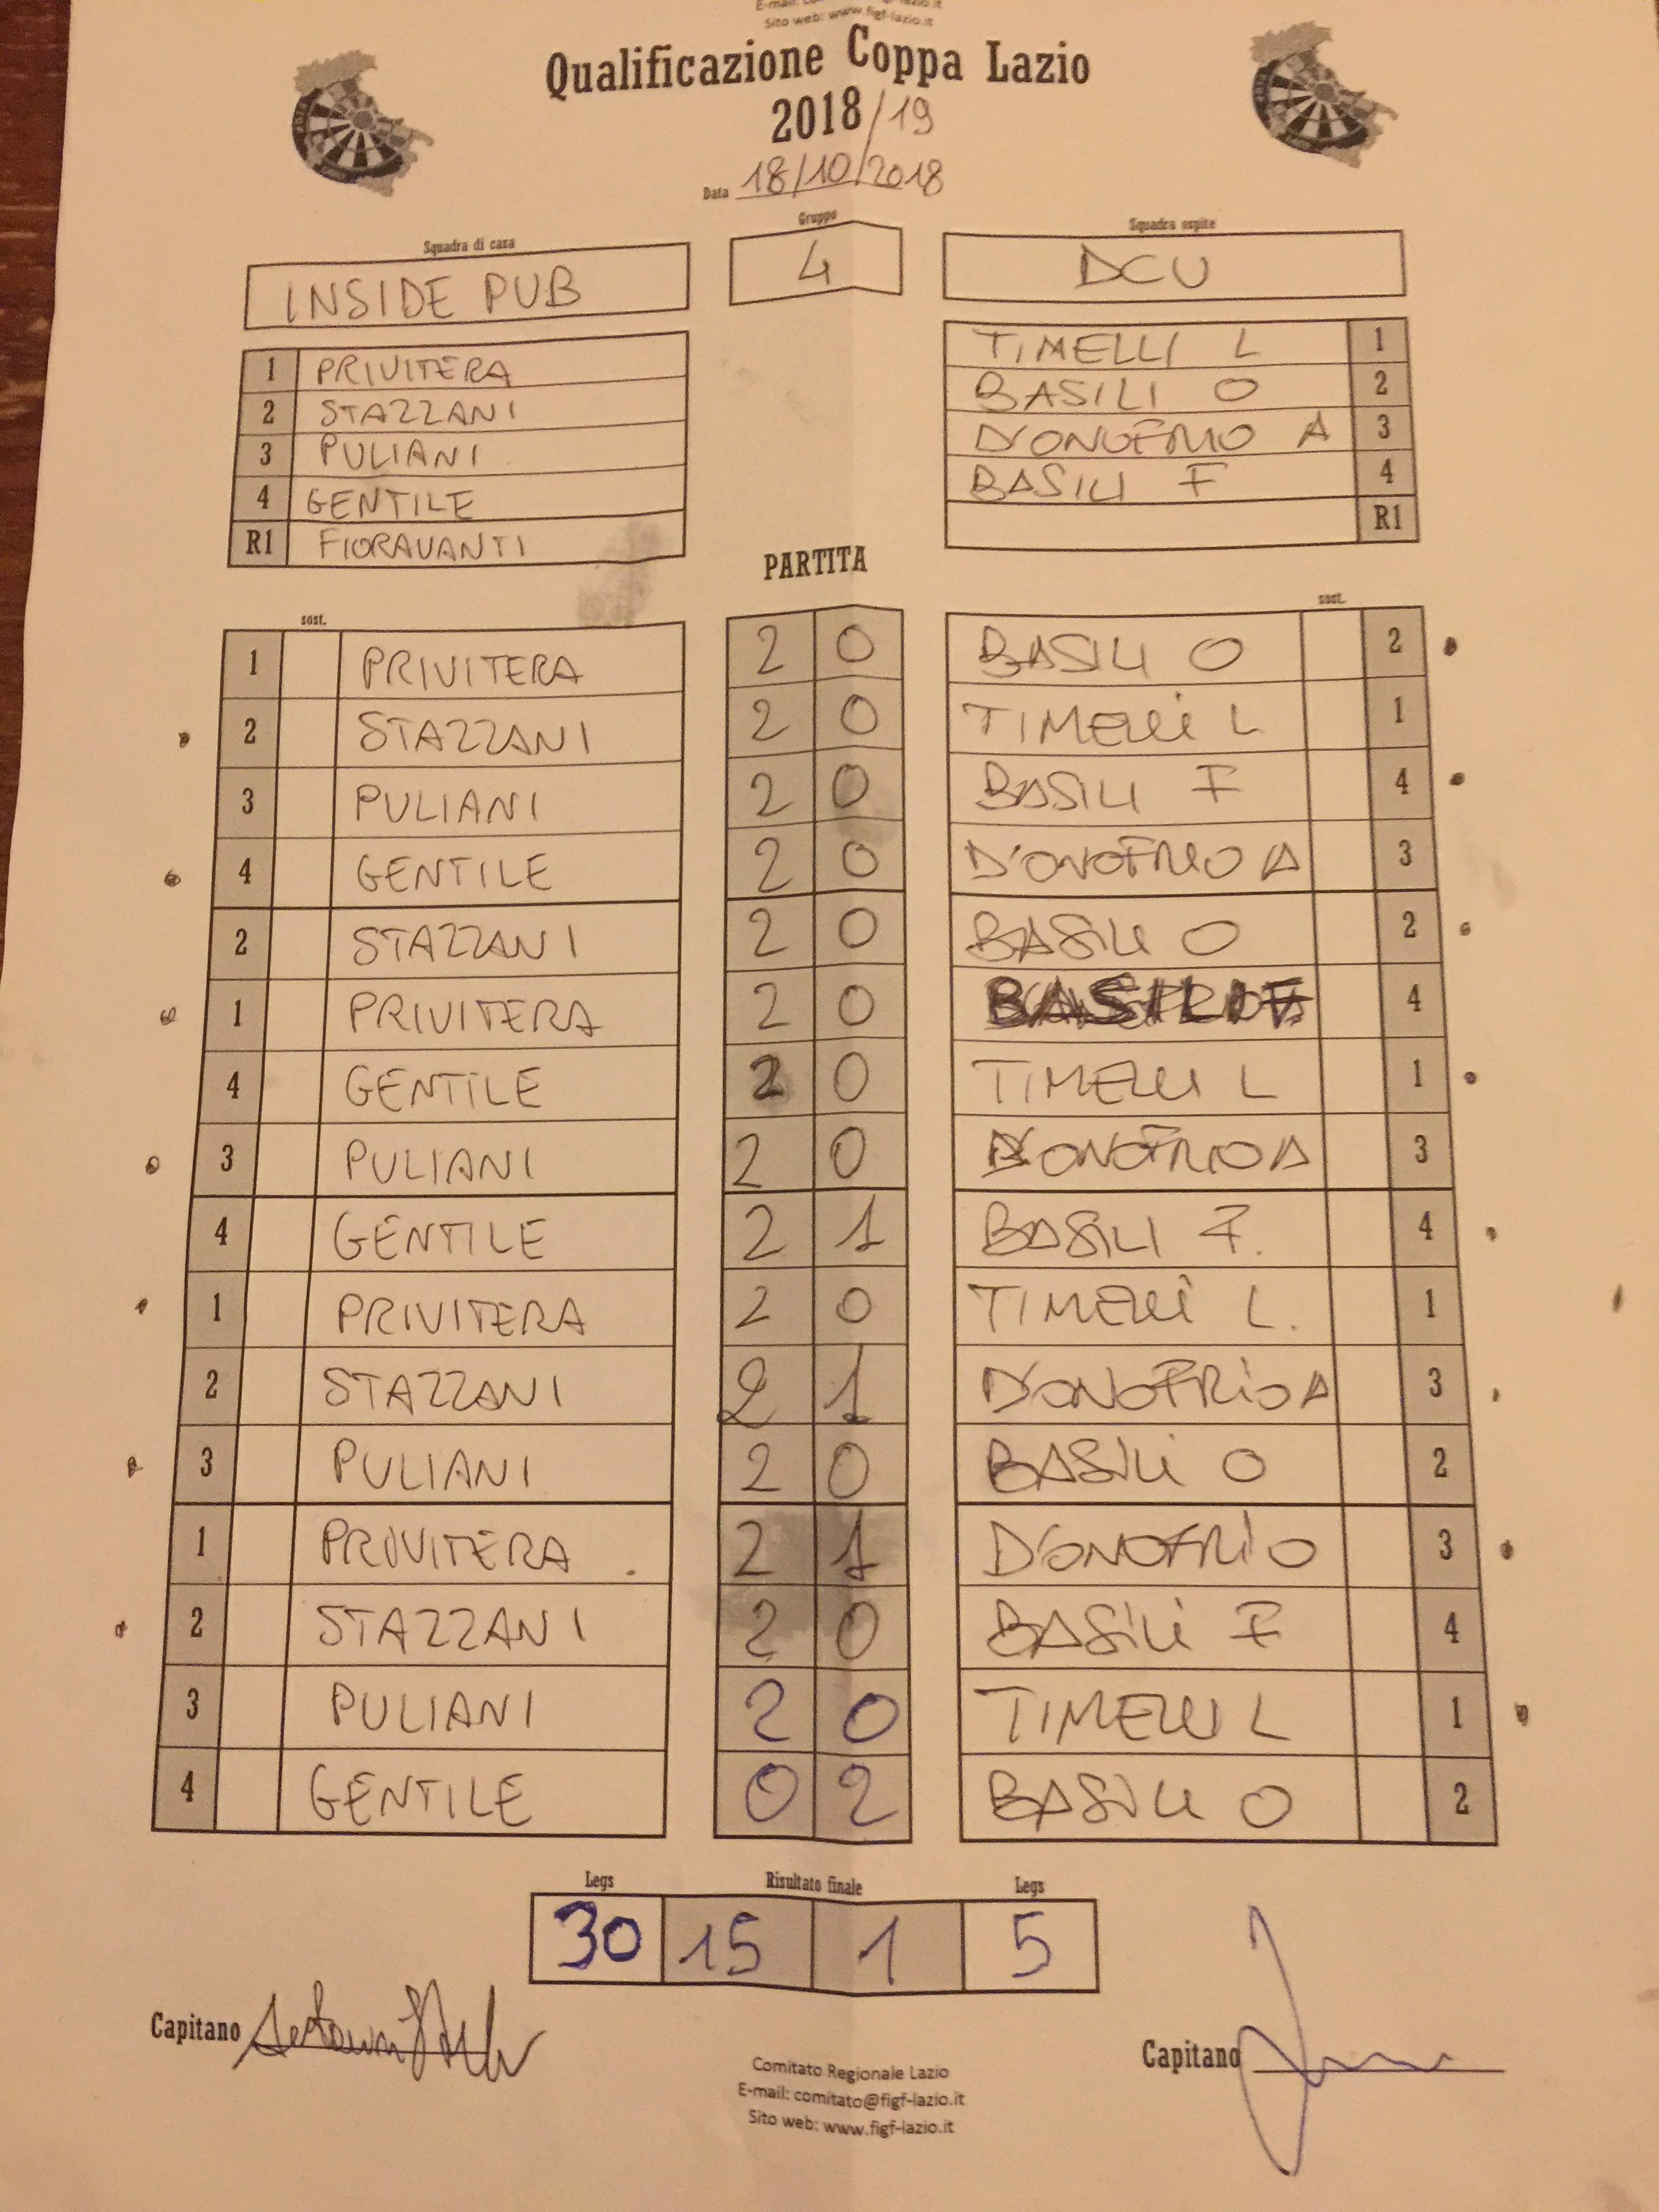 Sito web: www.figf-lazio.it
Qualificazione Coppa Lazio
2018/19
Data 18/10/2018
Squadra di casa Gruppo Squadra ospite
INSIDE PUB 4 DCU
1 PRIVITERA TIMELLI L 1
2 STAZZANI BASILI O 2
3 PULIANI D'ONOFRIO A 3
4 GENTILE BASILI F 4
R1 FIORAVANTI R1
PARTITA
sost. sost.
1 PRIVITERA 2 0 BASILI O 2
2 STAZZANI 2 0 TIMELLI L 1
3 PULIANI 2 0 BASILI F 4
4 GENTILE 2 0 D'ONOFRIO A 3
2 STAZZANI 2 0 BASILI O 2
1 PRIVITERA 2 0 BASILI F 4
4 GENTILE 2 0 TIMELLI L 1
3 PULIANI 2 0 D'ONOFRIO A 3
4 GENTILE 2 1 BASILI F. 4
1 PRIVITERA 2 0 TIMELLI L. 1
2 STAZZANI 2 1 D'ONOFRIO A 3
3 PULIANI 2 0 BASILI O 2
1 PRIVITERA 2 1 D'ONOFRIO 3
2 STAZZANI 2 0 BASILI F 4
3 PULIANI 2 0 TIMELLI L 1
4 GENTILE 0 2 BASILI O 2
Legs Risultato finale Legs
30 15 1 5
Capitano Capitano
Comitato Regionale Lazio
E-mail: comitato@figf-lazio.it
Sito web: www.figf-lazio.it